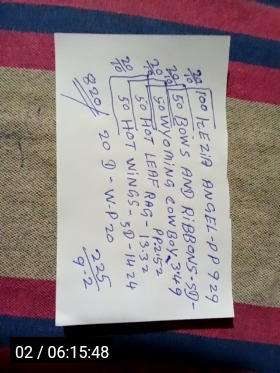 100 KEZIA ANGEL-PP929
50 BOWS AND RIBBONS-SD-349
50 WYOMING COWBOY
PP2152
50 HOT LEAF RAG-1332
50 HOT WINGS-SD-1424
20 D-W-P20
820/
225
9.2
02 / 06:15:48